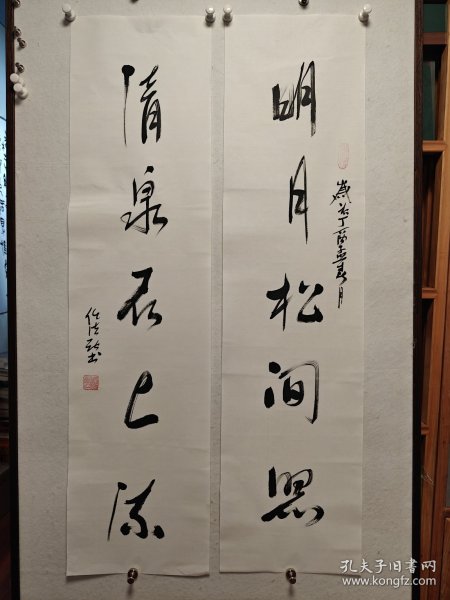 明月松间照
岁次丁酉孟春月
清泉石上流
孔夫子旧书网
www.kongfz.com